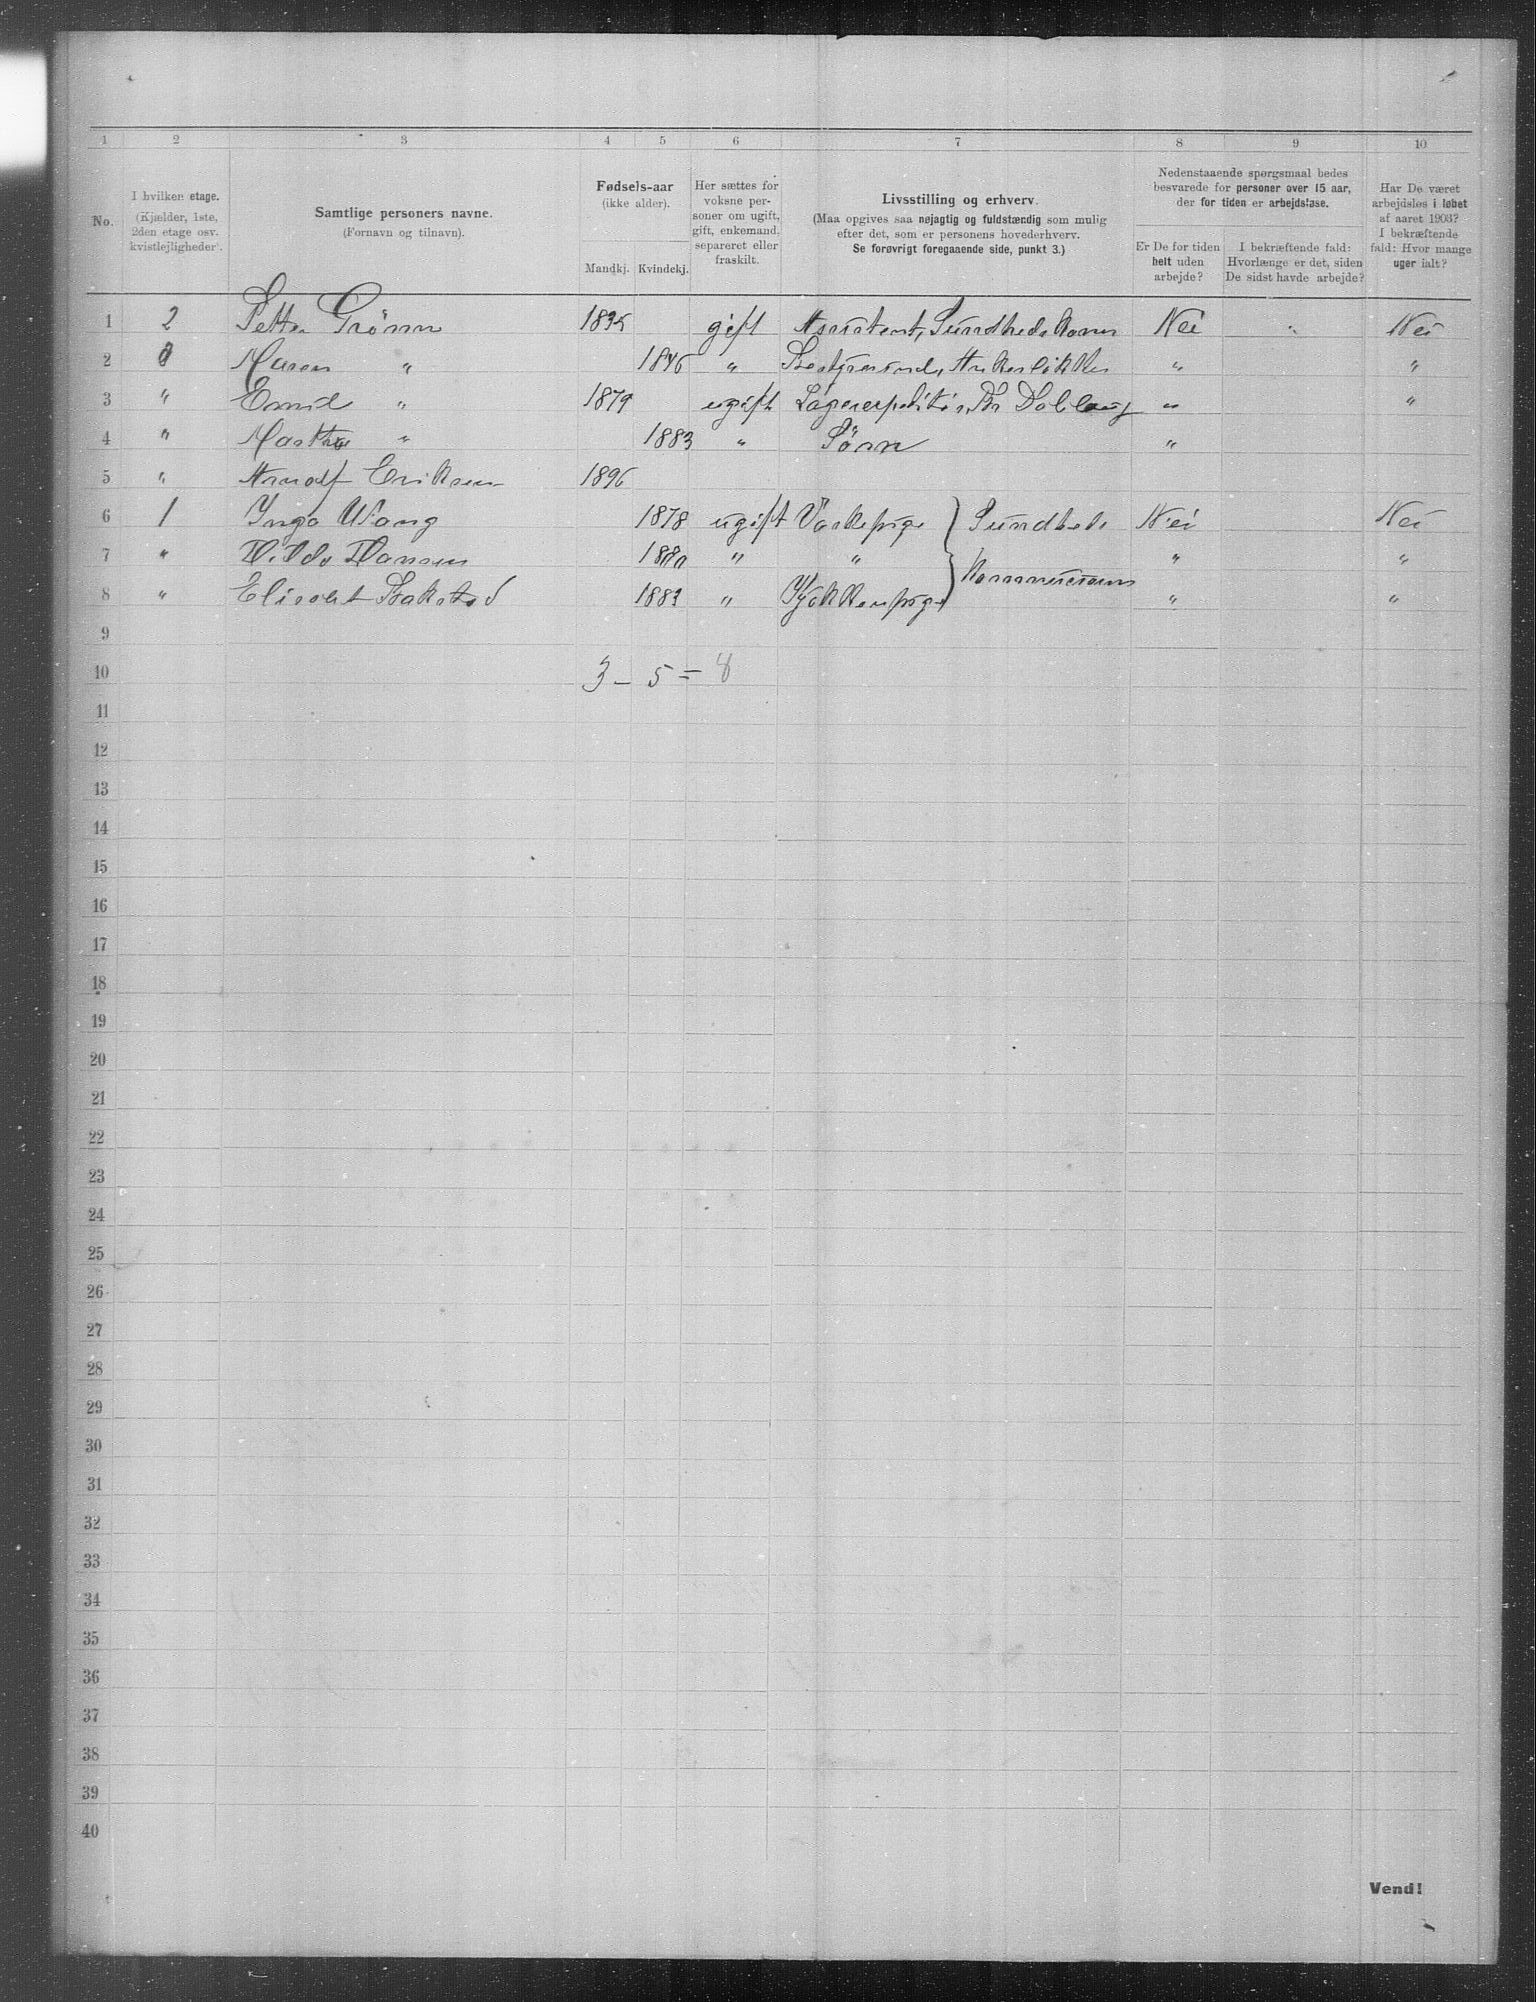 1 2 3 4 5 6 7 8 9 10
No.
I hvilken etage.
(Kjælder, 1ste,
2den etage osv.
kvistlejligheder).
Samtlige personers navne.
(Fornavn og tilnavn).
Fødsels-aar
(ikke alder).
Mandkj. Kvindekj.
Her sættes for
voksne per-
soner om ugift,
gift, enkemand,
separeret eller
fraskilt.
Livsstilling og erhverv.
(Maa opgives saa nøjagtig og fuldstændig som mulig
efter det, som er personens hovederhverv.
Se forøvrigt foregaaende side, punkt 3.)
Nedenstaaende spørgsmaal bedes
besvarede for personer over 15 aar,
der for tiden er arbejdsløse.
Er De for tiden
helt uden
arbejde?
I bekræftende fald:
Hvorlænge er det, siden
De sidst havde arbejde?
Har De været
arbejdsløs i løbet
af aaret 1903?
I bekræftende
fald: Hvor mange
uger ialt?
1 2 Petter Grönn 1835 gift Assistent, Sundhedskomm Nei " Nei
2 Maren " 1846 " Bestyrerinde, Ankerlökken " "
3 " Emil " 1879 ugift Lagerexpeditör, Br Dobloug " "
4 " Marthe " 1883 " Söm "
5 " Arnolf Eriksen 1896
6 1 Inga Wang 1878 ugift Vaskepige } Sundheds Nei Nei
7 " Hilda Hansen 1880 " " } kommissionen " "
8 " Elisabet Bakstad 1883 " Kjøkkenpige } " "
9
10 3 - 5 = 8
11
12
13
14
15
16
17
18
19
20
21
22
23
24
25
26
27
28
29
30
31
32
33
34
35
36
37
38
39
40
Vend!